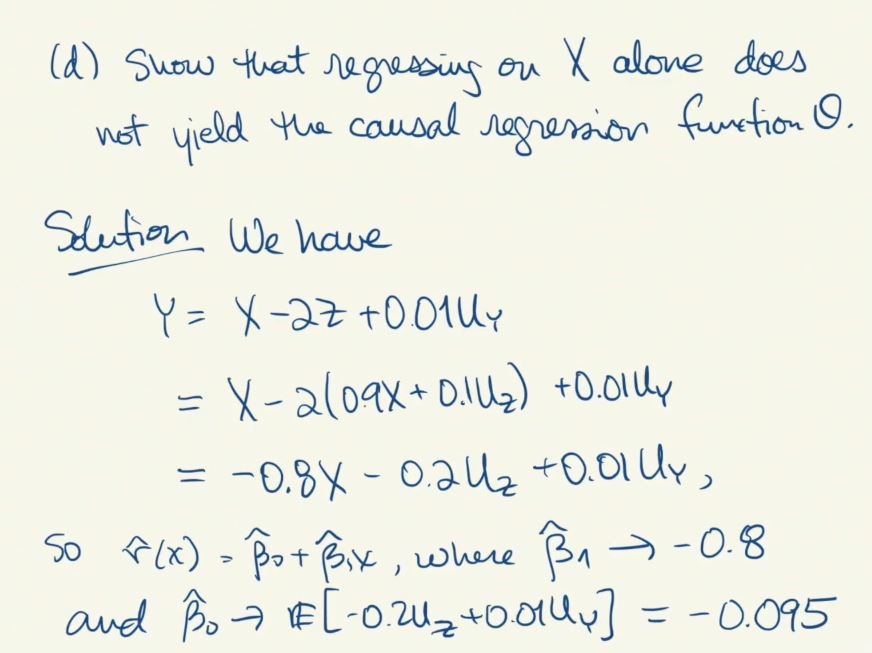 (d) Show that regressing on X alone does
not yield the causal regression function θ.
Solution We have
Y = X - 2Z + 0.01U_Y
= X - 2(0.9X + 0.1U_Z) + 0.01U_Y
= -0.8X - 0.2U_Z + 0.01U_Y,
So r̂(x) = β̂₀ + β̂₁x, where β̂₁ → -0.8
and β̂₀ → 𝔼[-0.2U_Z + 0.01U_Y] = -0.095